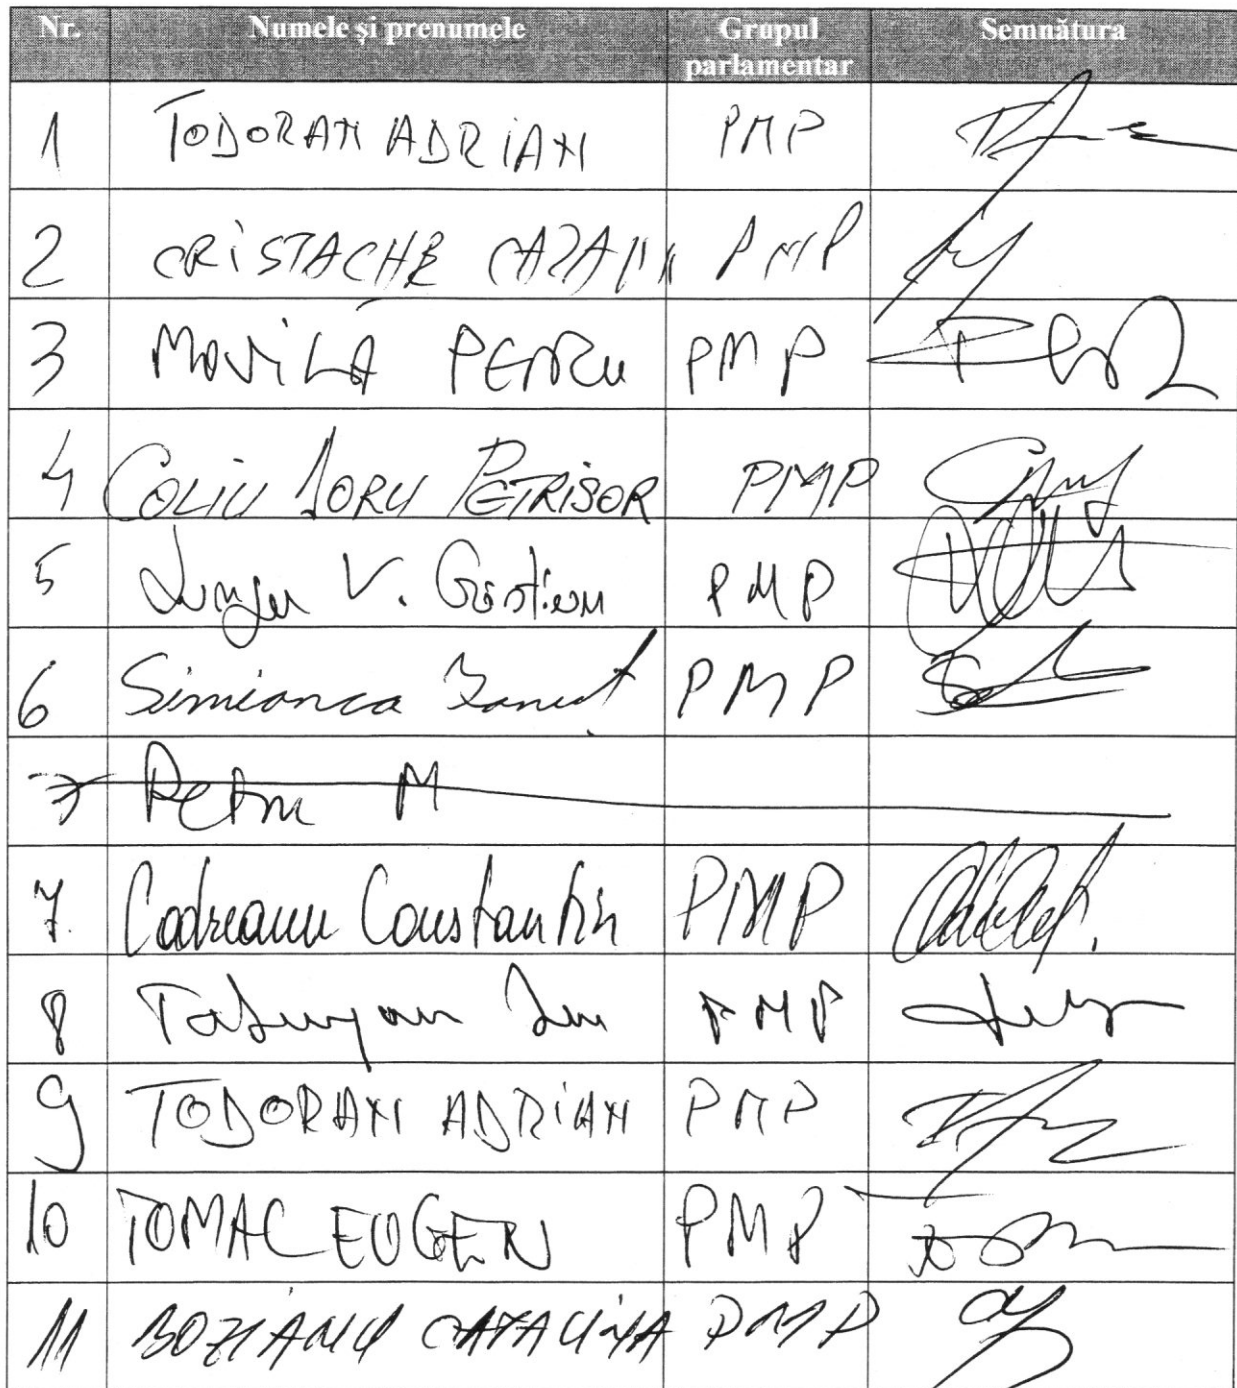 Nr. Numele și prenumele Grupul parlamentar Semnătura
1 TODORAN ADRIAN PMP
2 CRISTACHE CATALIN PMP
3 MOVILĂ PETRU PMP
4 COLIU DORU PETRISOR PMP
5 Lungu V. Cristian PMP
6 Simionca Ionut PMP
7 Petru M
7. Codreanu Constantin PMP
8 PMP
9 TODORAN ADRIAN PMP
10 TOMAC EUGEN PMP
11 BOZIANU CATALINA PMP